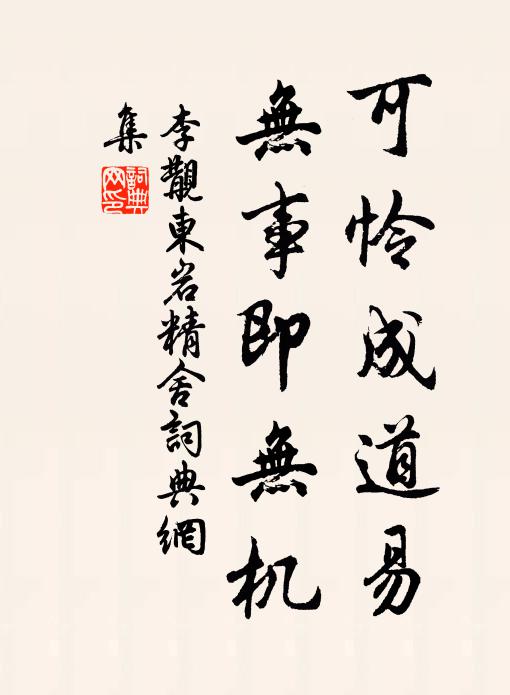 可怜成道易
無事即無机
李觀東岩精舍詞典網
集
詞典网印